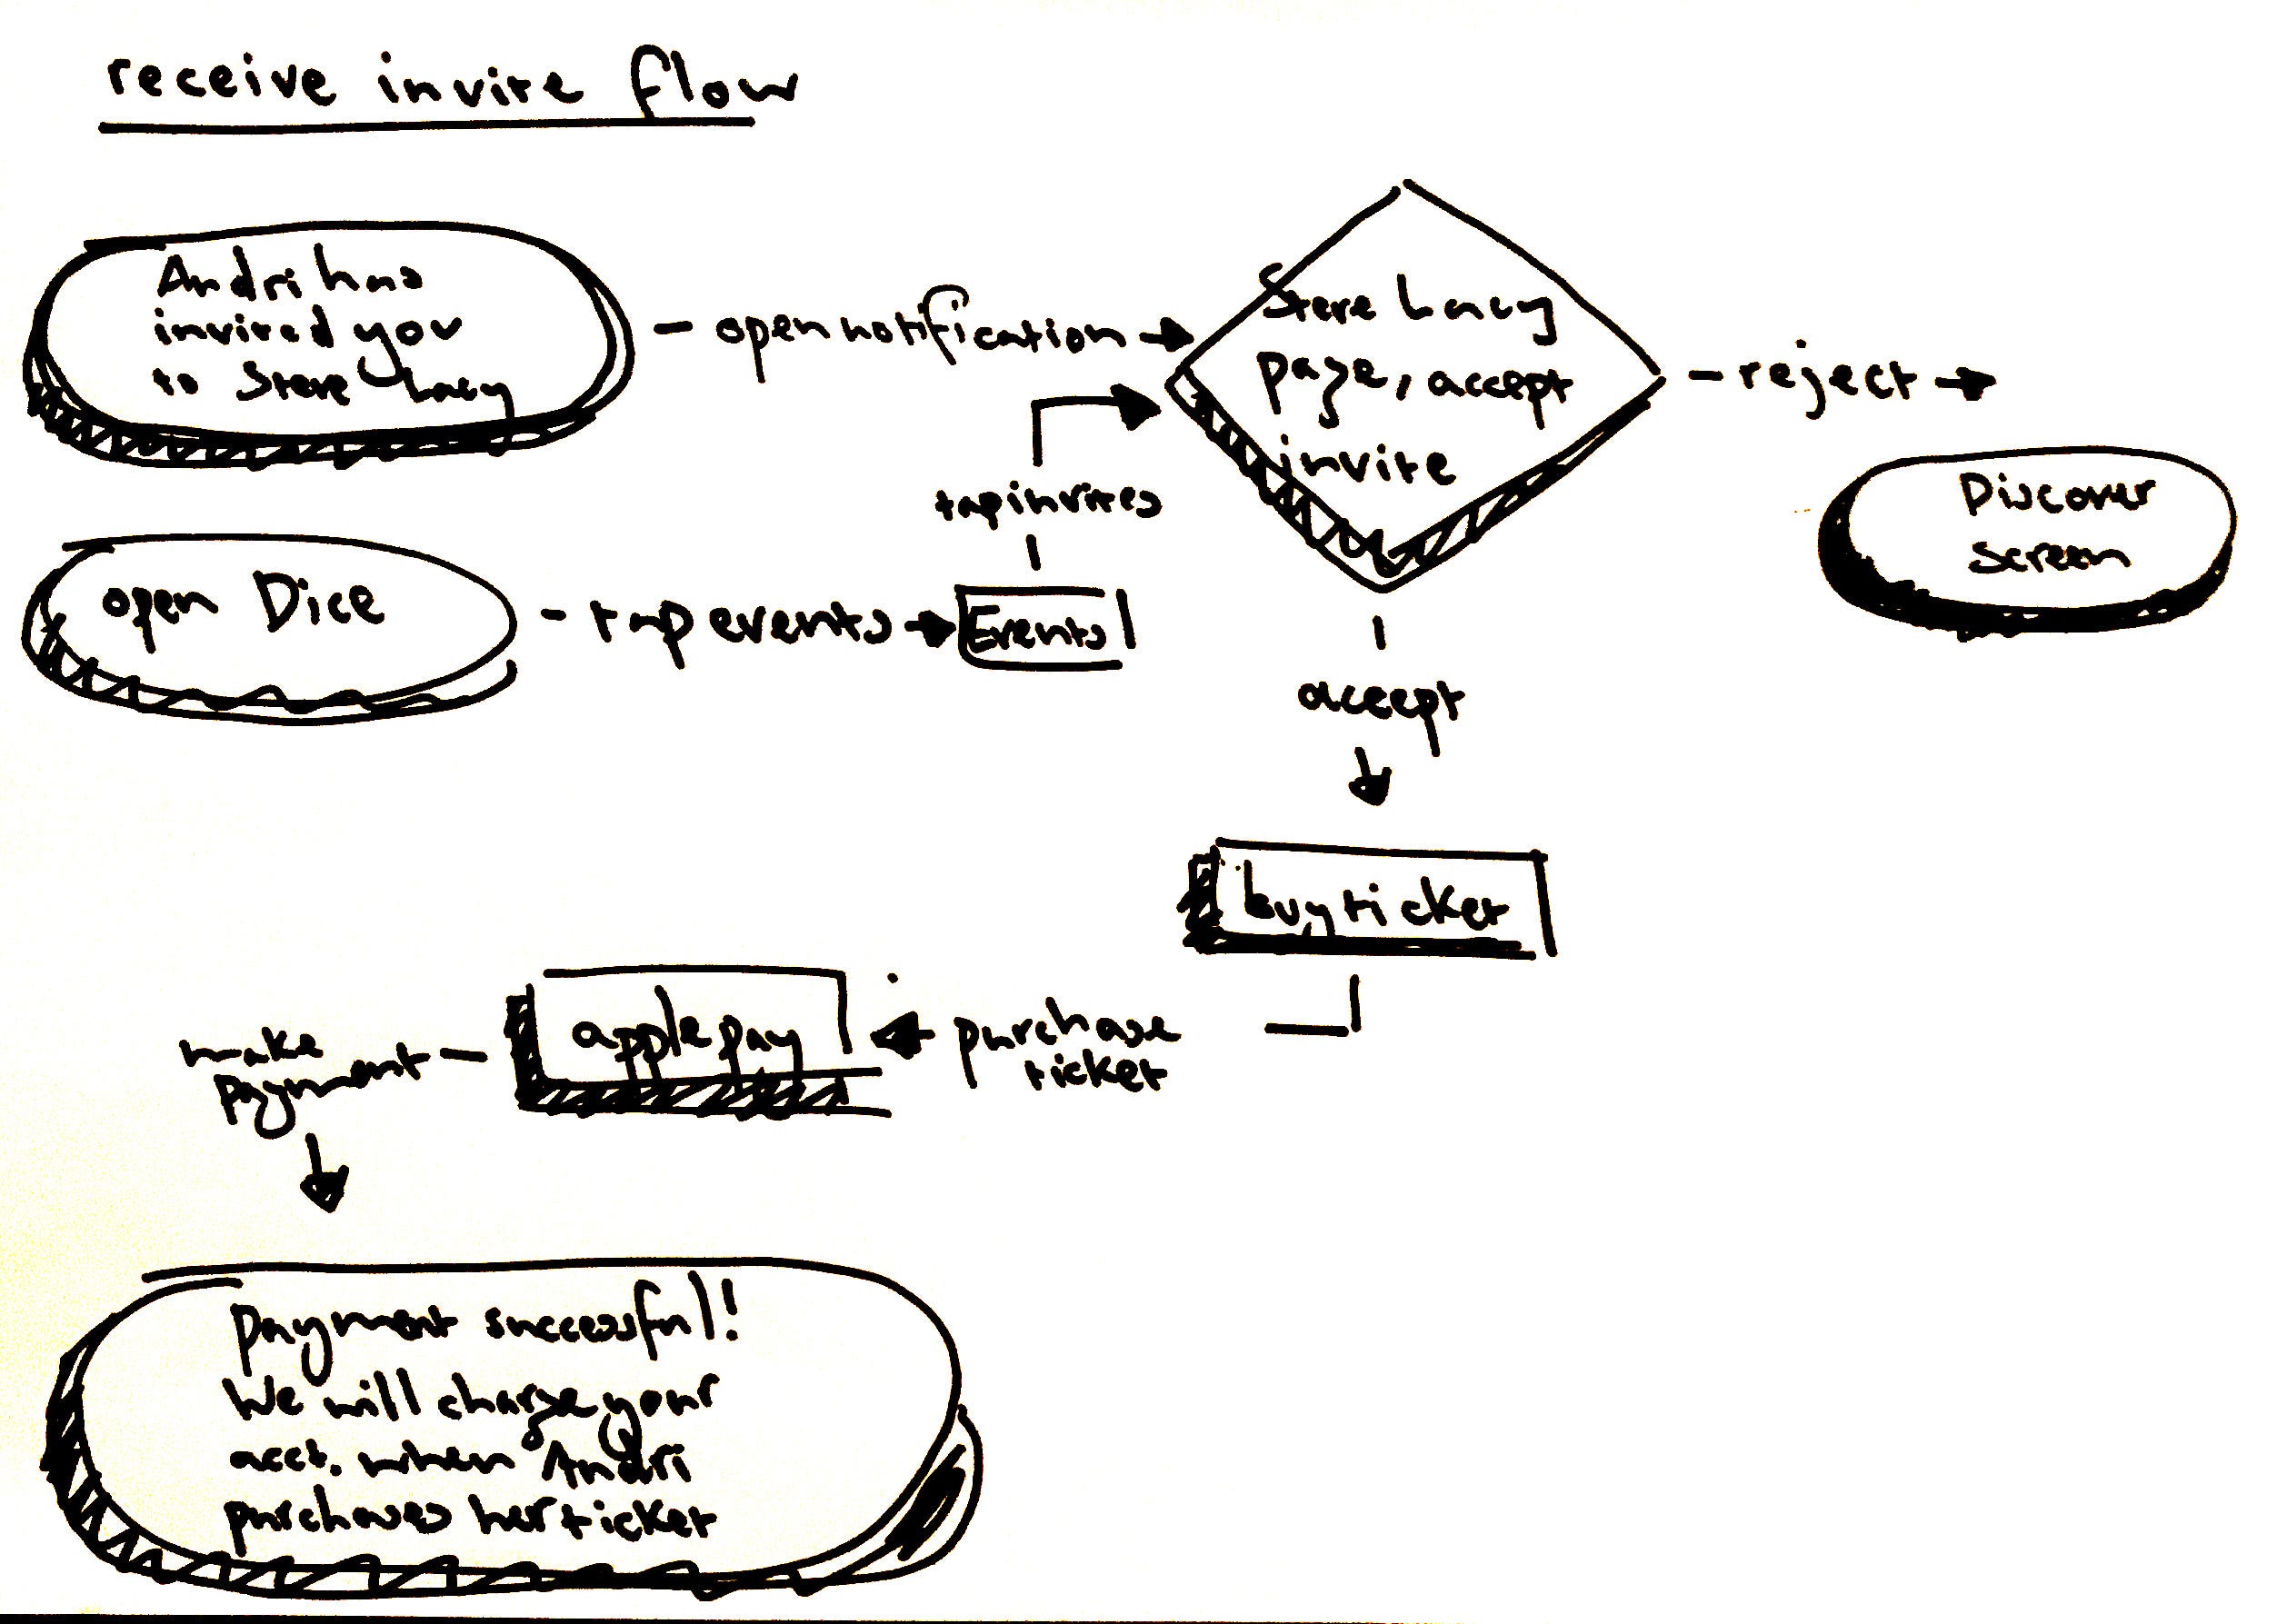 receive invite flow
Andri has
invited you
to Steve Lacy
open notification
Steve Lacy
page, accept
invite
reject
Discover
screen
tap invites
open Dice
tap events
Events
accept
buy ticket
purchase
ticket
apple pay
make
payment
payment successful!
We will charge your
acct. when Andri
purchases her ticket